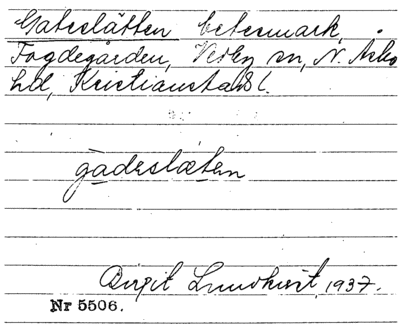 Gateslätten betesmark,
Fogdegården, Verby sn, N. Åsbo
hd, Kristianstads l.
gadeslætεn
Birgit Lundkvist, 1937.
Nr 5506.